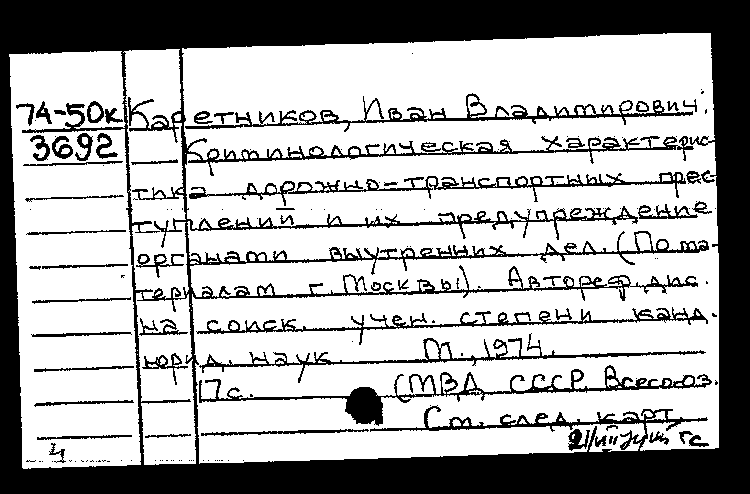 74-50к Каретников, Иван Владимирович.
3692 Криминологическая характерис-
тика дорожно-транспортных прес-
туплений и их предупреждение
органами внутренних дел. (По ма-
териалам г. Москвы). Автореф. дис.
на соиск. учен. степени канд.
юрид. наук. М., 1974.
17с. (МВД СССР. Всесоюз.
См. след. карт.
4